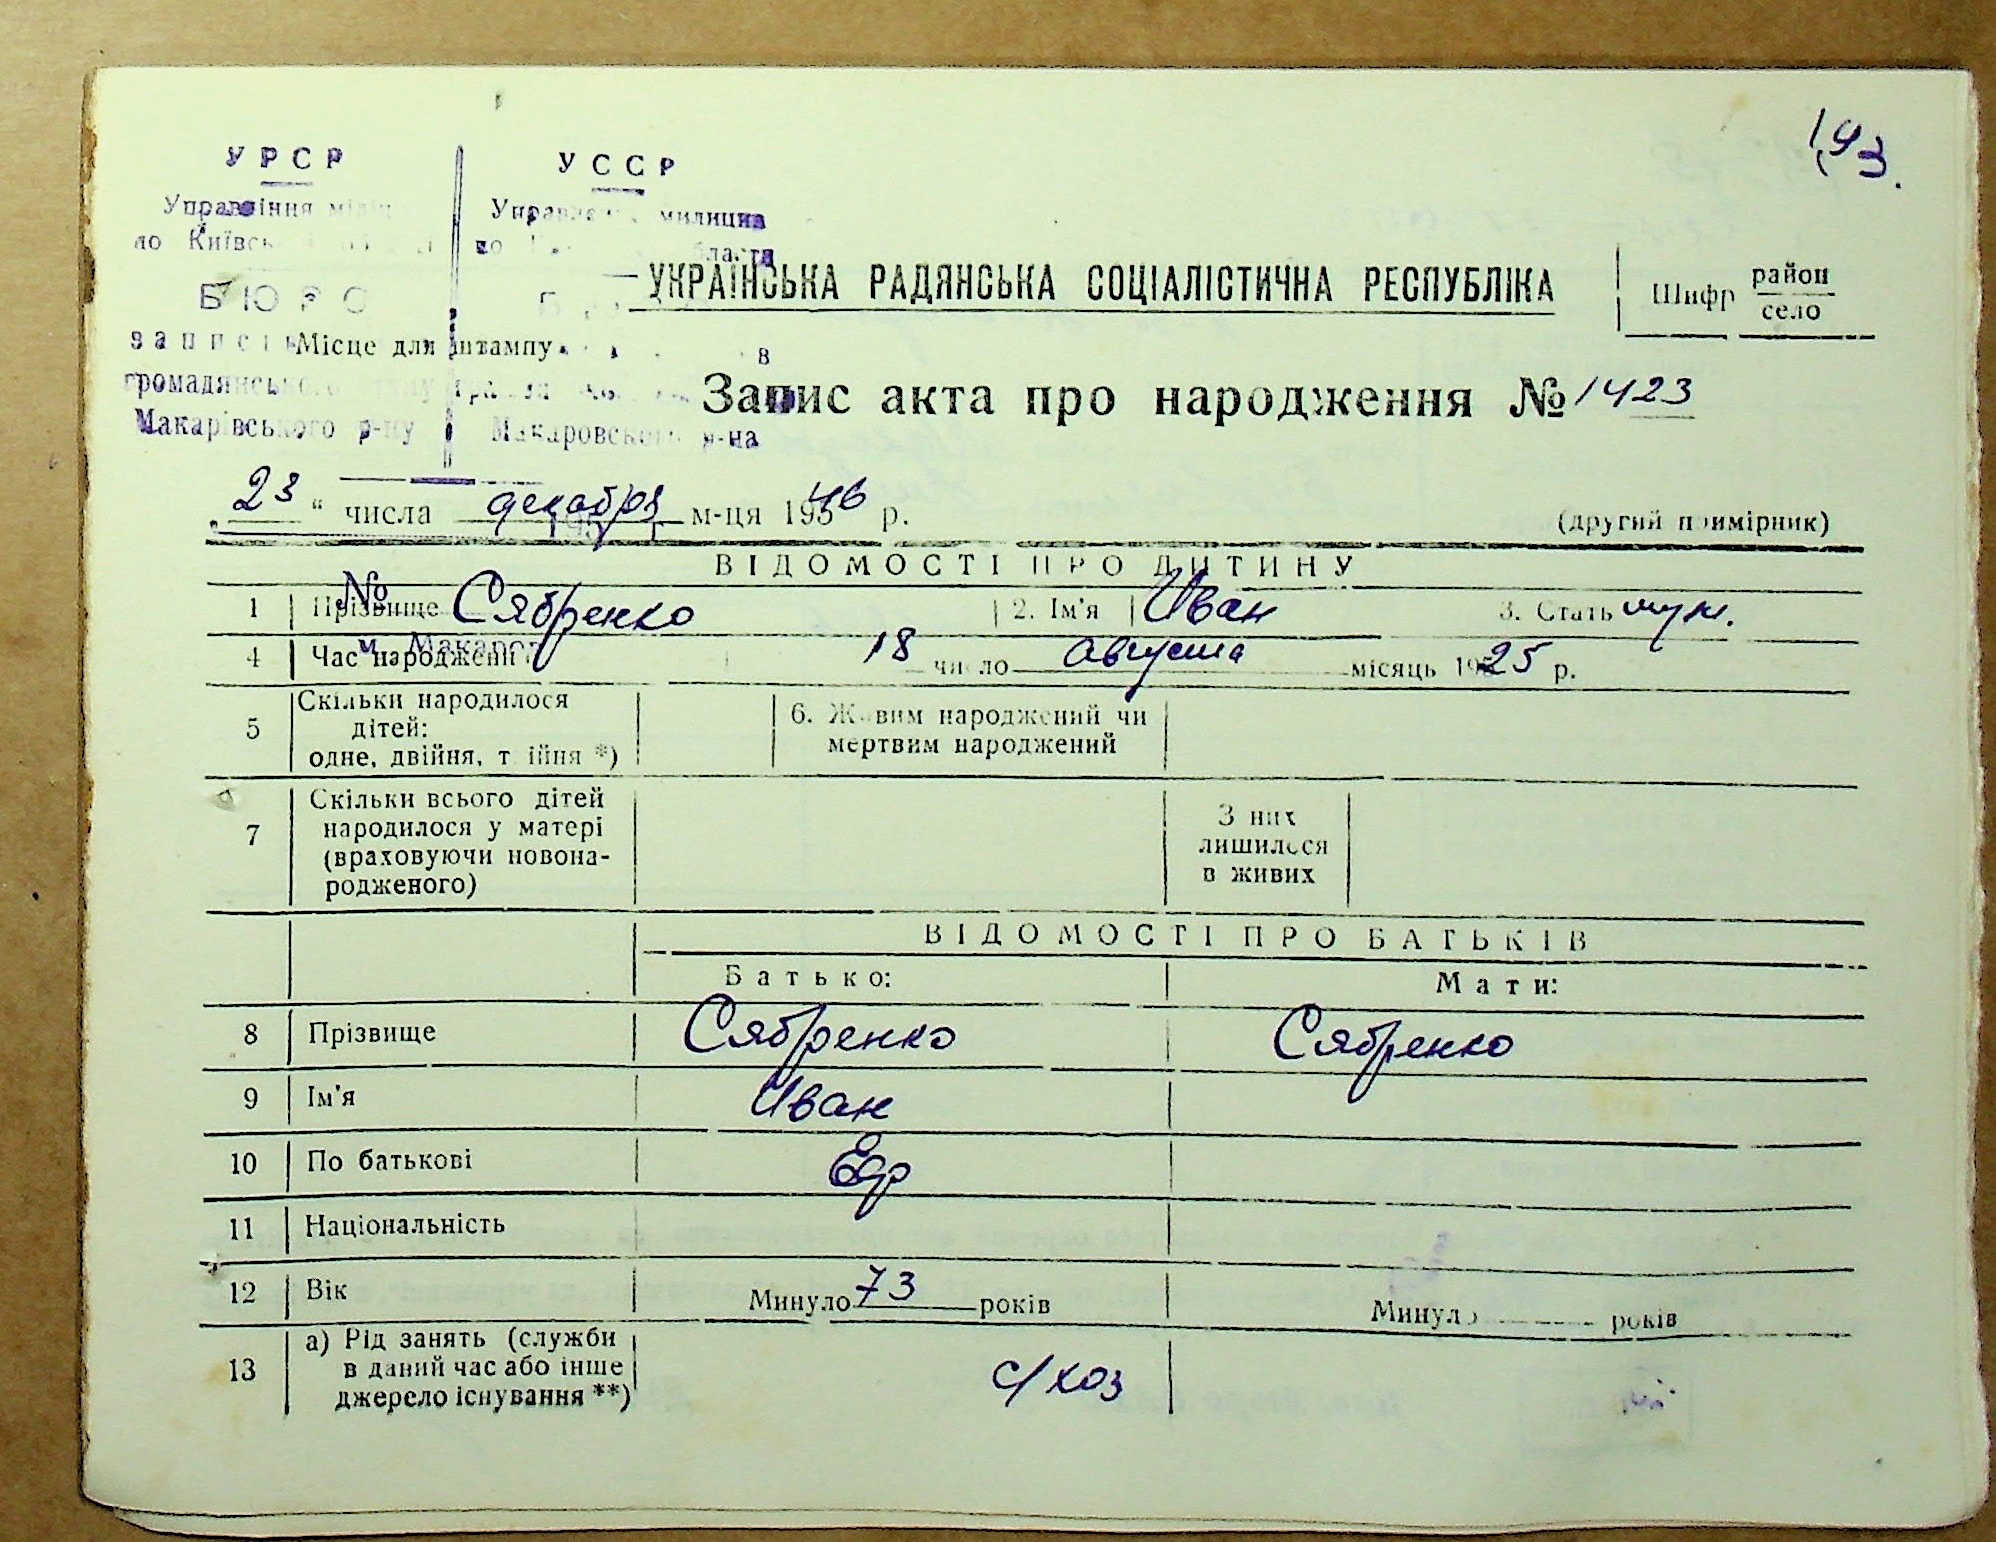 193.
УРСР
Управління
по Київс
БЮРО
запис
громадянського
Макарівського р-ну
УССР
милиции
по области
Макаровского р-на
Місце для штампу
УКРАЇНСЬКА РАДЯНСЬКА СОЦІАЛІСТИЧНА РЕСПУБЛІКА
Шифр район
село
Запис акта про народження № 1423
23 “ числа декабря м-ця 1946 р.
(другий примірник)
ВІДОМОСТІ ПРО ДИТИНУ
№
1 Прізвище Сябренко 2. Ім'я Иван 3. Стать муж.
м. Макаров
4 Час народження 18 число августа місяць 1925 р.
5 Скільки народилося
дітей:
одне, двійня, трійня *)
6. Живим народжений чи
мертвим народжений
7 Скільки всього дітей
народилося у матері
(враховуючи новона-
родженого)
З них
лишилося
в живих
ВІДОМОСТІ ПРО БАТЬКІВ
Батько: Мати:
8 Прізвище Сябренко Сябренко
9 Ім'я Иван
10 По батькові
11 Національність
12 Вік Минуло 73 років Минуло років
13 а) Рід занять (служби
в даний час або інше
джерело існування **)
с/хоз